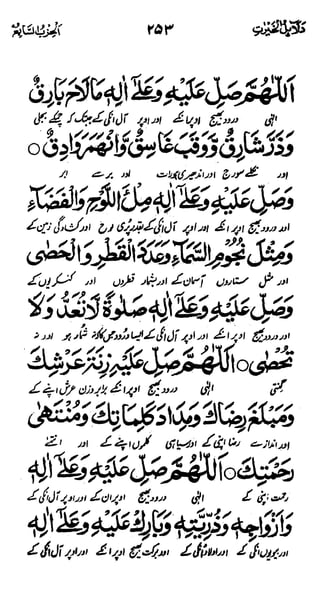 دلائل الخیرات ۲۵۳ الحزب السابع
اَللّٰهُمَّ صَلِّ عَلَيْهِ وَعَلٰٓى اٰلِهٖ مَا لَاحَ بَارِقٌ
الٰہی درود بھیج اوپر انکے اور اوپر آل انکی کے جبتک کہ چمکے بجلی
وَذَرَّ شَارِقٌ وَّوَقَبَ غَاسِقٌ وَّانْهَمَرَ وَادِقٌ ○
اور نکلے سورج اور اندھیری اور برسے
وَصَلِّ عَلَيْهِ وَعَلٰٓى اٰلِهٖ مِلْءَ اللَّوْحِ وَالْفَضَآءِ
اور درود بھیج اوپر انکے اور اوپر آل انکی کے بقدر پری لوح اور کشادگی زمین کے
وَمِثْلَ نُجُوْمِ السَّمَآءِ وَعَدَدَ الْقَطْرِ وَالْحَصٰى
اور مثل ستاروں آسمان کے اور بشمار قطروں اور کنکریوں کے
وَصَلِّ عَلَيْهِ وَعَلٰٓى اٰلِهٖ صَلٰوةً لَّا تُعَدُّ وَلَا
اور درود بھیج اوپر انکے اور اوپر آل انکی کے ایسا درود جس کا شمار ہو اور نہ
تُحْصٰى ○ اَللّٰهُمَّ صَلِّ عَلَيْهِ زِنَةَ عَرْشِكَ
گنتی الٰہی درود بھیج اوپر انکے برابر وزن عرش اپنے کے
وَمَبْلَغَ رِضَاكَ وَمِدَادَ كَلِمَاتِكَ وَمُنْتَهٰى
اور اندازے رضا اپنی کے اور سیاہی کلموں اپنے کے اور
رَحْمَتِكَ ○ اَللّٰهُمَّ صَلِّ عَلَيْهِ وَعَلٰٓى اٰلِهٖ
رحمت اپنی کے الٰہی درود بھیج اوپر ان کے اور اوپر آل انکی کے
وَاَزْوَاجِهٖ وَذُرِّيَّتِهٖ وَبَارِكْ عَلَيْهِ وَعَلٰٓى اٰلِهٖ
اور بیویوں انکی کے اور اولاد انکی کے اور برکت بھیج اوپر انکے اور اوپر آل انکی کے